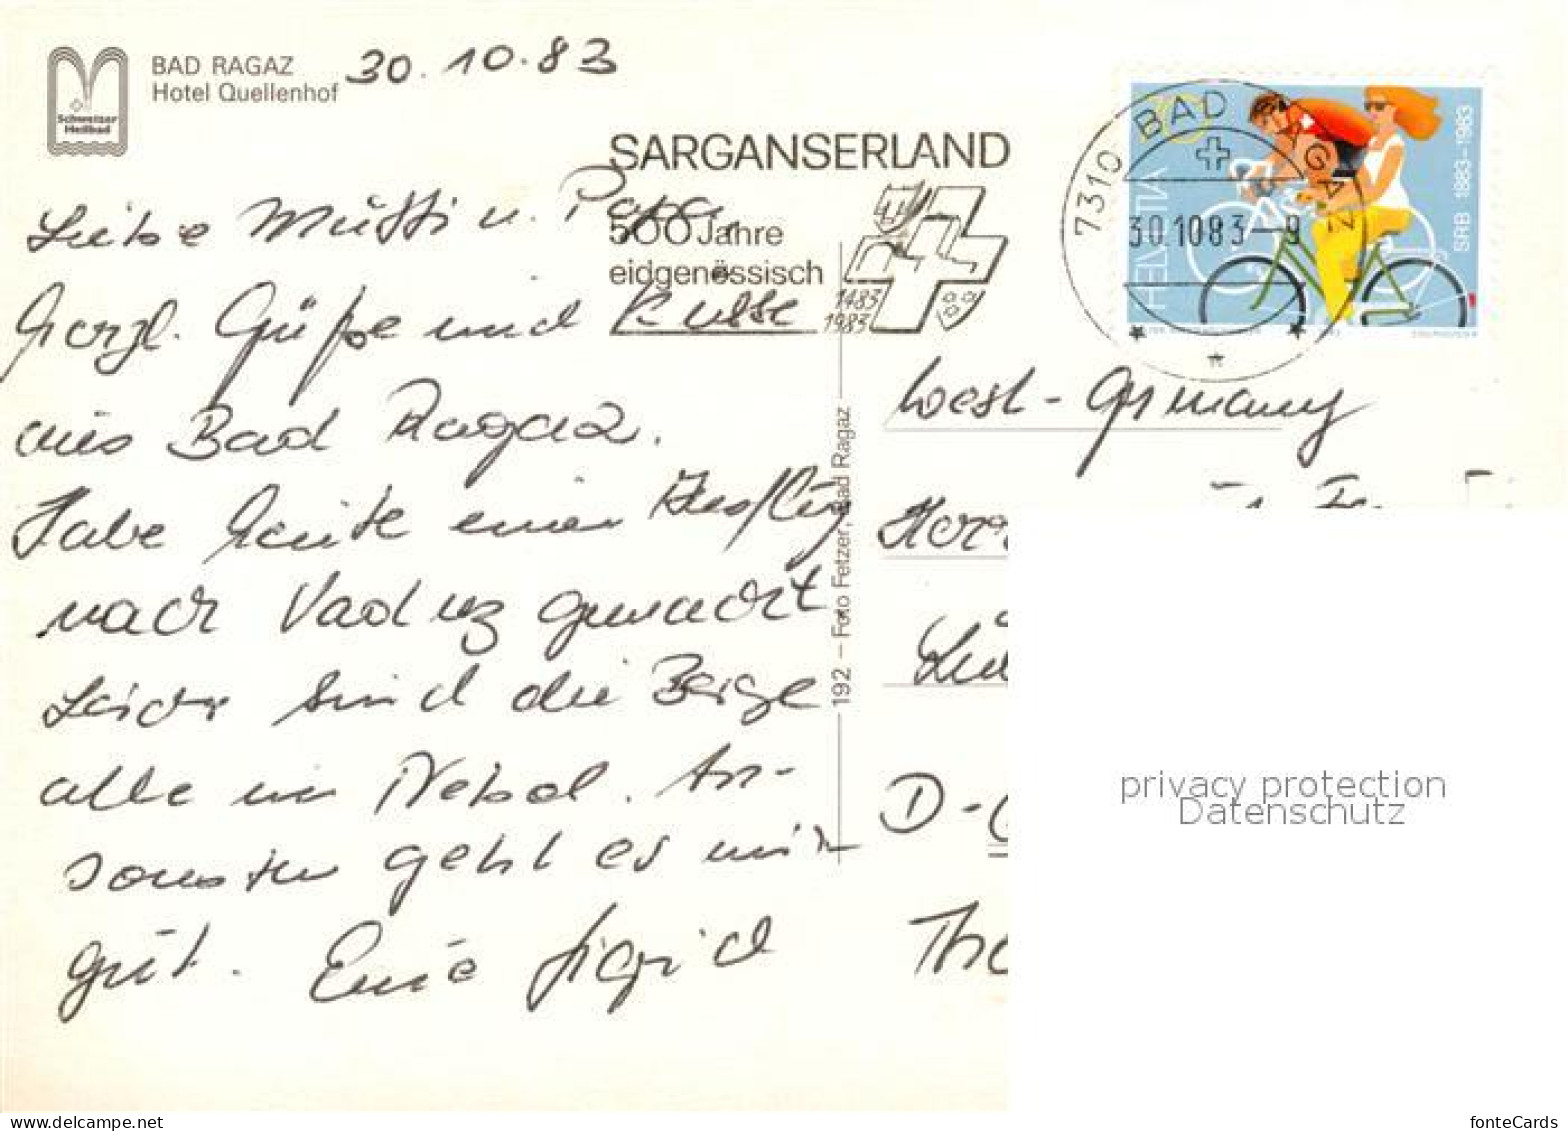 BAD RAGAZ
Hotel Quellenhof
30.10.83
Schweizer
Heilbad
SARGANSERLAND
500 Jahre
eidgenössisch
1483
1983
7310 BAD RAGAZ
30.10.83-9
HELVETIA
SRB 1883-1983
Liebe Mutti u. Papa.
Herzl. Grüße und Küsse
aus Bad Ragaz.
Habe heute einen Ausflug
nach Vaduz gemacht
Leider sind die Berge
alle im Nebel. An-
sonsten geht es mir
gut. Eure Sigrid
192 – Foto Fetzer, Bad Ragaz
West-Germany
D-
privacy protection
Datenschutz
fonteCards